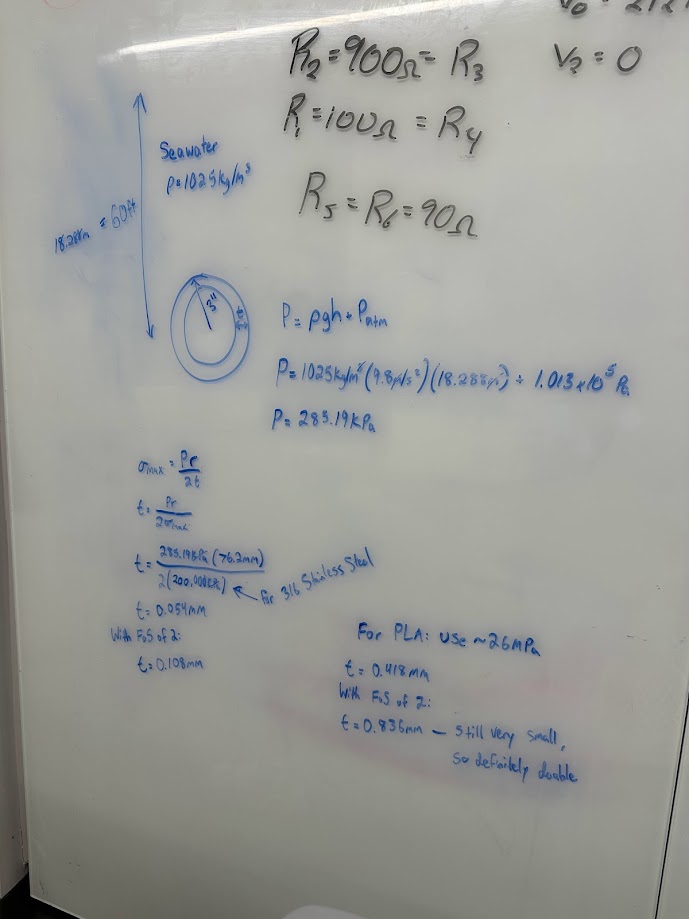 R₂ = 900Ω = R₃
V₂ = 0
R₁ = 100Ω = R₄
R₅ = R₆ = 90Ω
Seawater
ρ = 1025 kg/m³
= 60ft
3"
t
P = ρgh + Patm
P = 1025 kg/m³ (9.8 m/s²)(18.288m) + 1.013 x 10⁵ Pa
P = 285.19 kPa
σmax = Pr / 2t
t = Pr / 2σmax
t = 285.19kPa (76.2mm) / 2(200,000kPa) ← For 316 Stainless Steel
t = 0.054mm
With FoS of 2:
t = 0.108mm
For PLA: use ~26MPa
t = 0.418mm
With FoS of 2:
t = 0.836mm — still very small,
so definitely doable